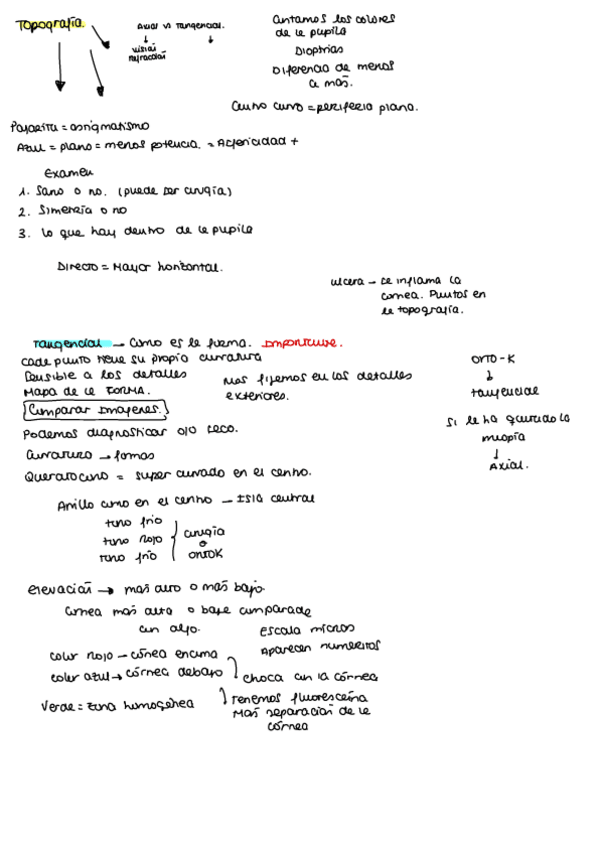 Topografía.
Axial vs Tangencial.
visiái
refracciái
Cintamos los colores
de le pupile
Dioptrias
Diferencia de menos
a más.
Cuino curvo = periferia plano.
Pajarita = astigmatismo
Azul = plano = menos potencia. = Asfericidad +
Examen
1. Sano o no. (puede ser cirugía)
2. Simetría o no
3. lo que hay dentro de le pupile
Directo = Mayor horizontal.
ulcera - se inflama la
cornea. Puntos en
le topografía.
Tangencial → Como es le forma. Importante.
cade punto tiene su propio curvatura
Sensible a los detalles
Mapa de le FORMA.
Nos fijemos en los detalles
exteriores.
Comparar Imágenes.
Podemos diagnosticar ojo seco.
Curvatura → formas
Queratocono = super curvado en el centro.
ORTO-K
↓
tangencial
Si le ha quedado la
miopía
↓
Axial.
Anillo como en el centro - Isla central
tono frío
tono rojo
tono frío
cirugía
o
ortoK
elevaciái → mas alto o más bajo.
Cornea más alta o baje comparade
con algo.
escala micros
Aparecen numeritos
color rojo - córnea encima
color azul → córnea debajo
choca con la córnea
Verde = zona homogénea
tenemos fluoresceína
Más separaciái de le
córnea